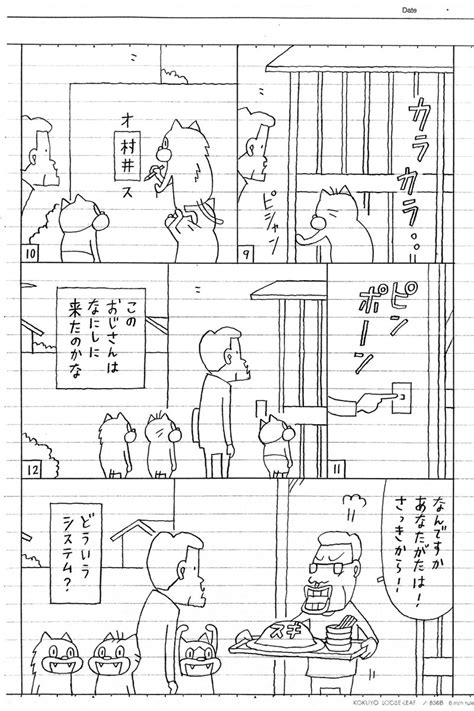 Date
カラカラ・・
ピシャン
9
オ
村井
ス
10
ピン
ポーン
11
この
おじさんは
なにしに
来たのかな
12
なんですか
あなたがたは!
さっきから!
スギ
どういう
システム?
KOKUYO LOOSE-LEAF ノ-836B 6 mm rule